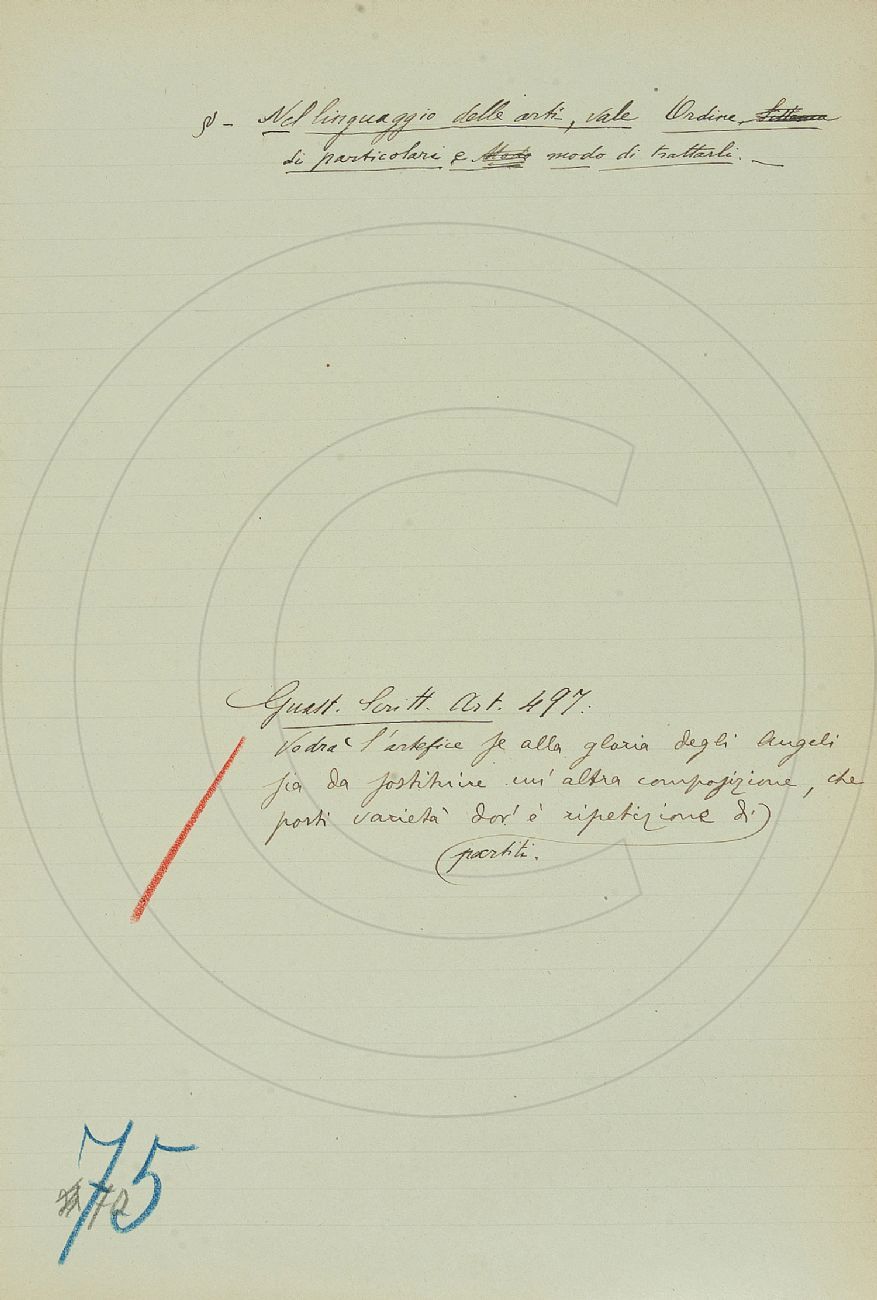 § - Nel linguaggio delle arti, vale Ordine, Sistema
di particolari e Modo modo di trattarli. _
Guast. Scritt. Art. 497.
Vedrà l'artefice se alla gloria degli Angeli
sia da sostituire un'altra composizione, che
porti varietà dov'è ripetizione di
partiti.
75
72